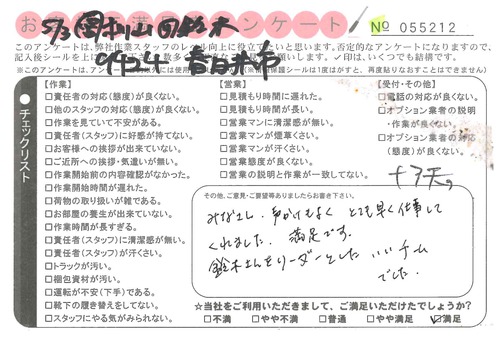 お　　　満　　　ンケート
5/3 岡本 山田 鈴木
№ 055212
このアンケートは、弊社作業スタッフのレベル向上に役立てたいと思います。否定的なアンケートになりますので、
9424 春日井市
【作業】
□責任者の対応(態度)が良くない。
□他のスタッフの対応(態度)が良くない。
□作業を見ていて不安がある。
□責任者(スタッフ)に好感が持てない。
□お客様への挨拶が出来ていない。
□ご近所への挨拶・気遣いが無い。
□作業開始前の内容確認がなかった。
□作業開始時間が遅れた。
□荷物の取り扱いが雑である。
□お部屋の養生が出来ていない。
□作業時間が長すぎる。
□責任者(スタッフ)に清潔感が無い。
□責任者(スタッフ)が汗くさい。
□トラックが汚い。
□梱包資材が汚い。
□運転が不安(下手)である。
□靴下の履き替えをしてない。
□スタッフにやる気がみられない。
チェックリスト
【営業】
□見積もり時間に遅れた。
□見積もり時間が長い。
□営業マンに清潔感が無い。
□営業マンが煙草くさい。
□営業マンが汗くさい。
□営業態度が良くない。
□営業の説明と作業が一致してない。
【受付・その他】
□電話の対応が良くない。
□オプション業者の説明
・作業が良くない。
□オプション業者の対応
(態度)が良くない。
+3点。
その他、ご意見・ご要望等ありましたらお書き下さい。
みなさん、声かけもよく とても早く仕事して
くれました。 満足です。
鈴木さんをリーダーとした いいチーム
でした。
☆当社をご利用いただきまして、ご満足いただけたでしょうか?
□不満 □やや不満 □普通 □やや満足 ☑満足